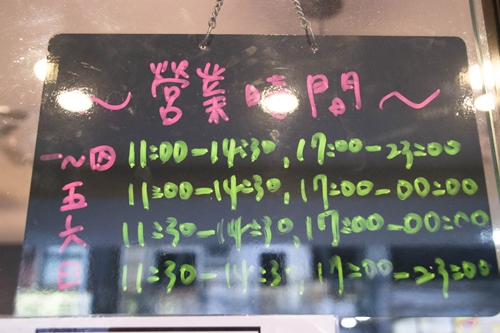 ～營業時間～
一～四 11:00-14:30, 17:00-23:00
五 11:00-14:30, 17:00-00:00
六 11:30-14:30, 17:00-00:00
日 11:30-14:30, 17:00-23:00